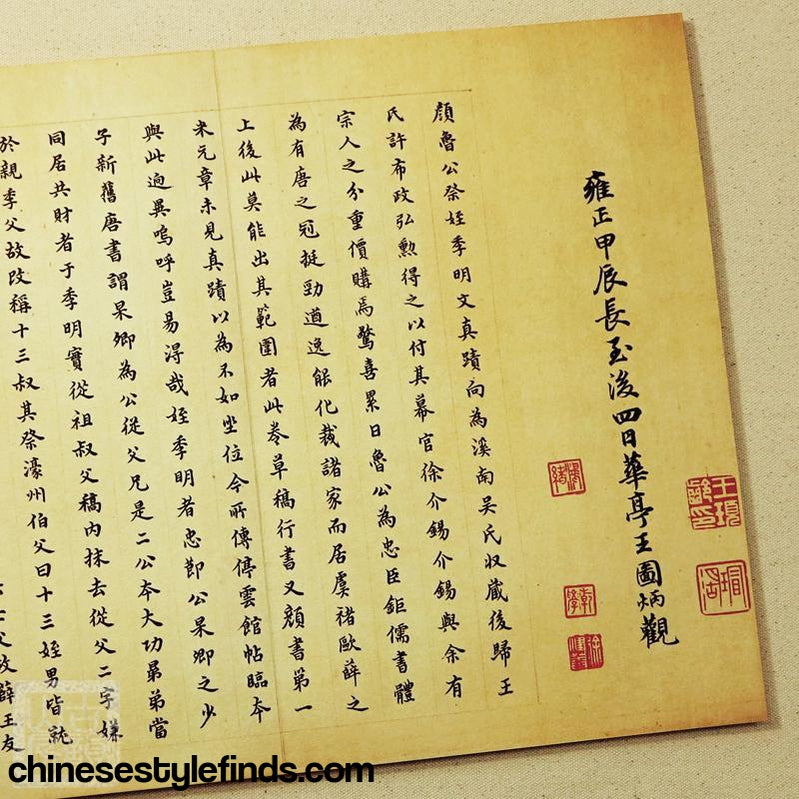 雍正甲辰長至後四日華亭王圖炳觀
顏魯公祭姪季明文真蹟向為溪南吳氏收藏後歸王
氏許布政弘勳得之以付其幕官徐介錫介錫與余有
宗人之分重價購焉驚喜累日魯公為忠臣鉅儒書體
為有唐之冠挺勁遒逸能化裁諸家而居虞褚歐薛之
上後此莫能出其範圍者此卷草稿行書又顏書第一
米元章未見真蹟以為不如坐位今所傳停雲館帖臨本
與此逈異嗚呼豈易得哉姪季明者忠節公杲卿之少
子新舊唐書謂杲卿為公從父兄是二公本大功弟弟當
同居共財者于季明實從祖叔父稿內抹去從父二字嫌
於親季父故改稱十三叔其祭濠州伯父曰十三姪男皆就
父故薛王友
chinesestylefinds.com